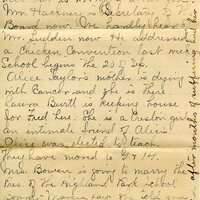 Mr. Hackney is Secretary of
Board now. We hardly hear
Mr. Ludden now He addressed
a Chicken Convention last week
School begins the 20 of Sep.
Alice Taylor's mother is dying
with Cancer and she is there.
Laura Burtt is keeping house
for Fred here. She is a Creston girl
an intimate friend of Alice's.
Alice was elected to teach.
They have moved to 9 & 14.
Mrs. Bowen is going to marry the
Pres. of the Highland Park School
after months of suffering